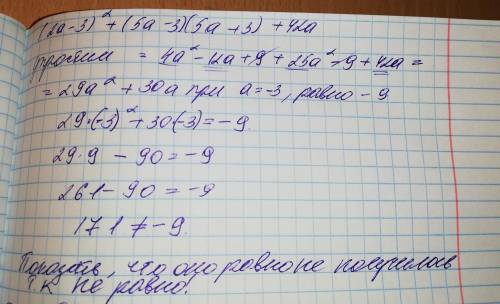 (2a-3)² + (5a-3)(5a+3) + 42a
= 4a² - 12a + 9 + 25a² - 9 + 42a =
= 29a² + 30a при a = -3, равно - 9
29·(-3)² + 30(-3) = -9.
29·9 - 90 = -9
261 - 90 = -9
171 ≠ -9.
Показать, что оно равно не получилось
т.к не равно!